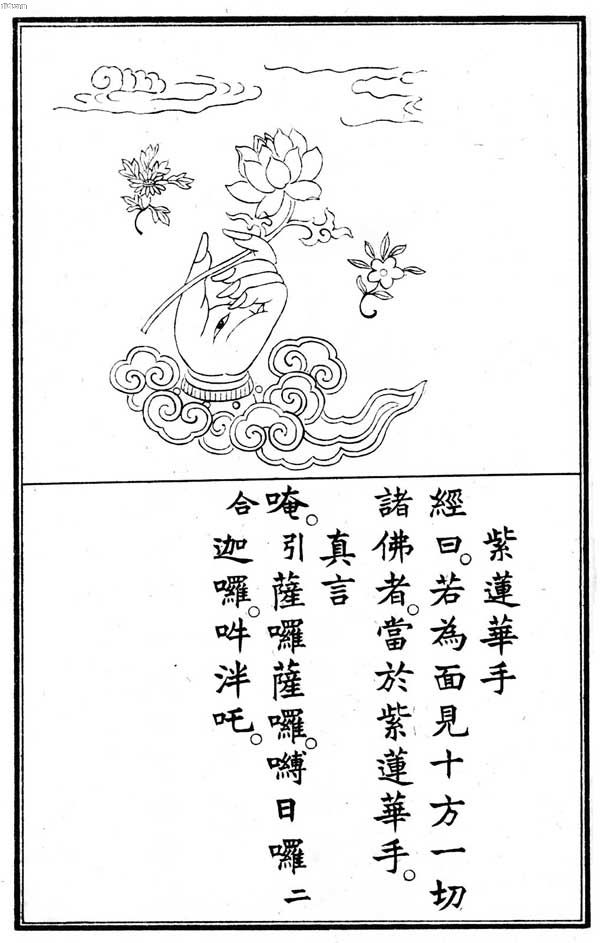 紫蓮華手
經曰。若為面見十方一切
諸佛者。當於紫蓮華手。
真言
唵。引薩囉薩囉。嚩日囉二
合迦囉。吽泮吒。